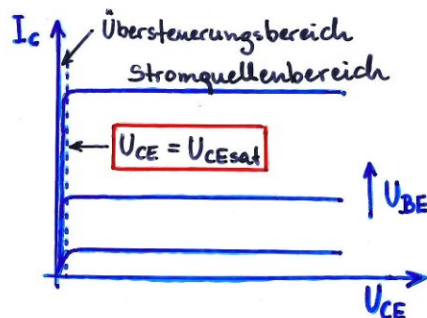 I_C
Übersteuerungsbereich
Stromquellenbereich
U_CE = U_CEsat
U_BE
U_CE